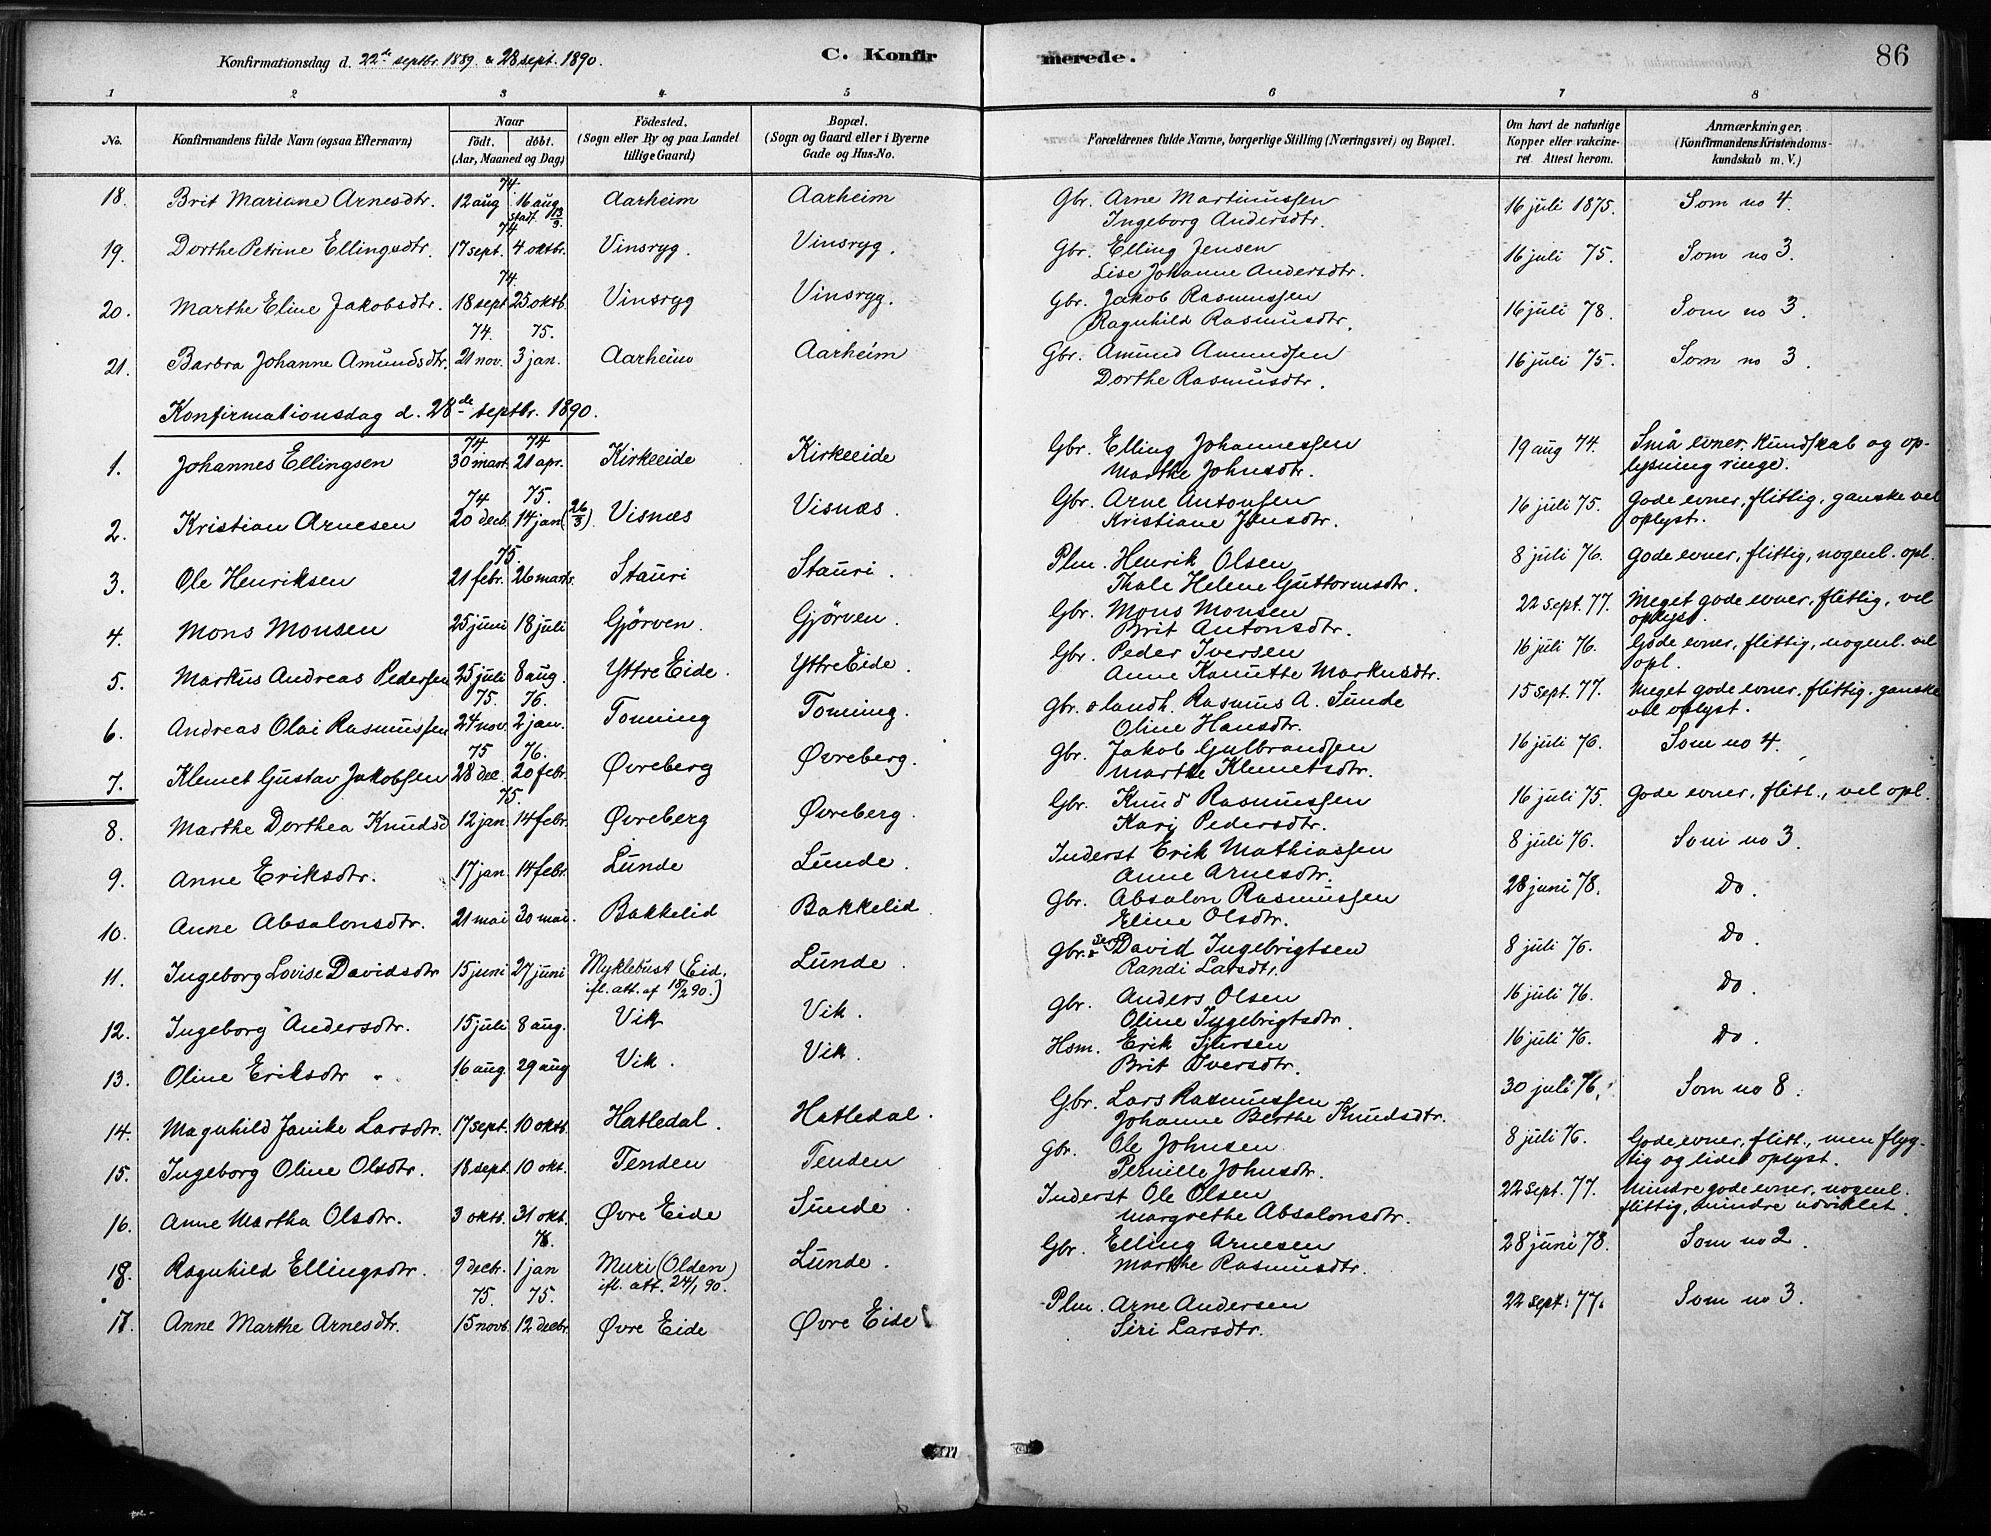 Konfirmationsdag d. 22de septbr. 1889. & 28 sept. 1890.
C. Konfirmerede.
86
1 2 3 4 5 6 7 8
No.
Konfirmandens fulde Navn (ogsaa Efternavn)
Naar
födt. döbt.
(Aar, Maaned og Dag)
Födested.
(Sogn eller By og paa Landet
tillige Gaard)
Bopæl.
(Sogn og Gaard eller i Byerne
Gade og Hus-No.
Forældrenes fulde Navne, borgerlige Stilling (Næringsvei) og Bopæl.
Om havt de naturlige
Kopper eller vakcine-
ret Attest herom.
Anmærkninger.
(Konfirmandens Kristendoms-
kundskab m. V.)
74.
18. Brit Mariane Arnesdtr. 12 aug 16 aug Aarheim Aarheim Gbr. Arne Martinussen 16 juli 1875. Som no 4.
stadf. 13/3 Ingeborg Andersdtr.
74
19. Dorthe Petrine Ellingsdtr. 17 sept. 4 oktbr. Vinsryg. Vinsryg. Gbr. Elling Jensen 16 juli 75. Som no 3.
Lise Johanne Andersdtr.
74.
20. Marthe Eline Jakobsdtr. 18 sept 25 oktb. Vinsryg Vinsryg. Gbr. Jakob Rasmussen 16 juli 78. Som no 3.
Ragnhild Rasmusdtr.
74. 75.
21. Barbra Johanne Amundsdtr. 21 nov. 3 jan. Aarheim Aarheim Gbr. Amund Amundsen 16 juli 75. Som no 3.
Dorthe Rasmusdtr.
Konfirmationsdag d. 28de septbr. 1890.
74 74
1. Johannes Ellingsen 30 mart. 21 apr. Kirkeeide Kirkeeide Gbr. Elling Johannessen 19 aug 74. Små evner. Kundskab og op-
Marthe Johnsdtr. lysning ringe.
74 75.
2. Kristian Arnesen 20 decb. 14 jan (26/3). Visnæs Visnæs. Gbr. Arne Antonsen 16 juli 75. Gode evner, flittig, ganske vel
Kristiane Jonsdtr. oplyst.
75.
3. Ole Henriksen 21 febr. 26 marts Stauri Stauri. Plm. Henrik Olsen 8 juli 76. Gode evner, flittig, nogenl. opl.
Thale Helene Guttormsdtr.
4. Mons Monsen 25 juni 18 juli Gjörven. Gjörven. Gbr. Mons Monsen 22 sept. 77. Meget gode evner, flittig, vel
Brit Antonsdtr. oplyst.
5. Markus Andreas Pedersen 25 juli 8 aug. Yttre Eide. Yttre Eide. Gbr. Peder Iversen 16 juli 76. Gode evner, flittig, nogenl. vel
Anne Kanutte Markusdtr. opl.
75. 76.
6. Andreas Olai Rasmussen 24 nov. 2 jan. Tonning Tonning. Gbr. o landh. Rasmus A. Sunde 15 sept. 77. Meget gode evner, flittig, ganske
Oline Hansdtr. vel oplyst.
75 76.
7. Klemet Gustav Jakobsen 28 dec. 20 febr. Øvreberg Øvreberg. Gbr. Jakob Gulbrandsen 16 juli 76. Som no 4.
Marthe Klemetsdtr.
75.
8. Marthe Dorthea Knudsd 12 jan. 14 febr. Øvreberg Øvreberg. Gbr. Knud Rasmussen 16 juli 75. Gode evner, flitt., vel opl.
Kari Pedersdtr.
9. Anne Eriksdtr. 17 jan. 14 febr. Lunde Lunde. Inderst Erik Mathiassen 8 juli 76. Som no 3.
Anne Arnesdtr.
10. Anne Absalonsdtr. 21 mai 30 mai. Bakkelid Bakkelid. Gbr. Absalon Rasmussen 28 juni 78. Do.
Eline Olsdtr.
11. Ingeborg Lovise Davidsdtr 15 juni 27 juni Myklebust (Eid, Lunde. Gbr. David Ingebrigtsen 8 juli 76. Do.
ifl. att. af 18/2 90.) Randi Larsdtr.
12. Ingeborg Andersdtr. 15 juli 8 aug. Vik Vik. Gbr. Anders Olsen 16 juli 76. Do.
Oline Ingebrigtsdtr.
13. Oline Eriksdtr 16 aug. 29 aug Vik. Vik. Hsm. Erik Sjursen 16 juli 76. Do.
Brit Iversdtr.
14. Magnhild Janike Larsdtr. 17 sept. 10 oktb. Hatledal. Hatledal. Gbr. Lars Rasmussen 30 juli 76. Som no 8.
Johanne Berthe Knudsdtr.
15. Ingeborg Oline Olsdtr. 18 sept. 10 okt. Tenden Tenden Gbr. Ole Johnsen 8 juli 76. Gode evner, flitt., men flyg-
Pernille Johnsdtr. tig og lidet oplyst.
16. Anne Martha Olsdtr. 3 oktb. 31 okt. Øvre Eide Sunde. Inderst Ole Olsen 22 sept. 77. Mindre gode evner, nogenl.
Margrethe Absalonsdtr. flittig, mindre udviklet.
76.
18. Ragnhild Ellingsdtr. 9 decbr. 1 jan Muri (Olden) Lunde. Gbr. Elling Arnesen 28 juni 78. Som no 2.
ifl. att. 24/1 90. Marthe Rasmusdtr.
75. 75.
17. Anne Marthe Arnesdtr. 15 novb. 12 decbr. Øvre Eide Øvre Eide Plm. Arne Andersen 22 sept. 77. Som no 3.
Siri Larsdtr.